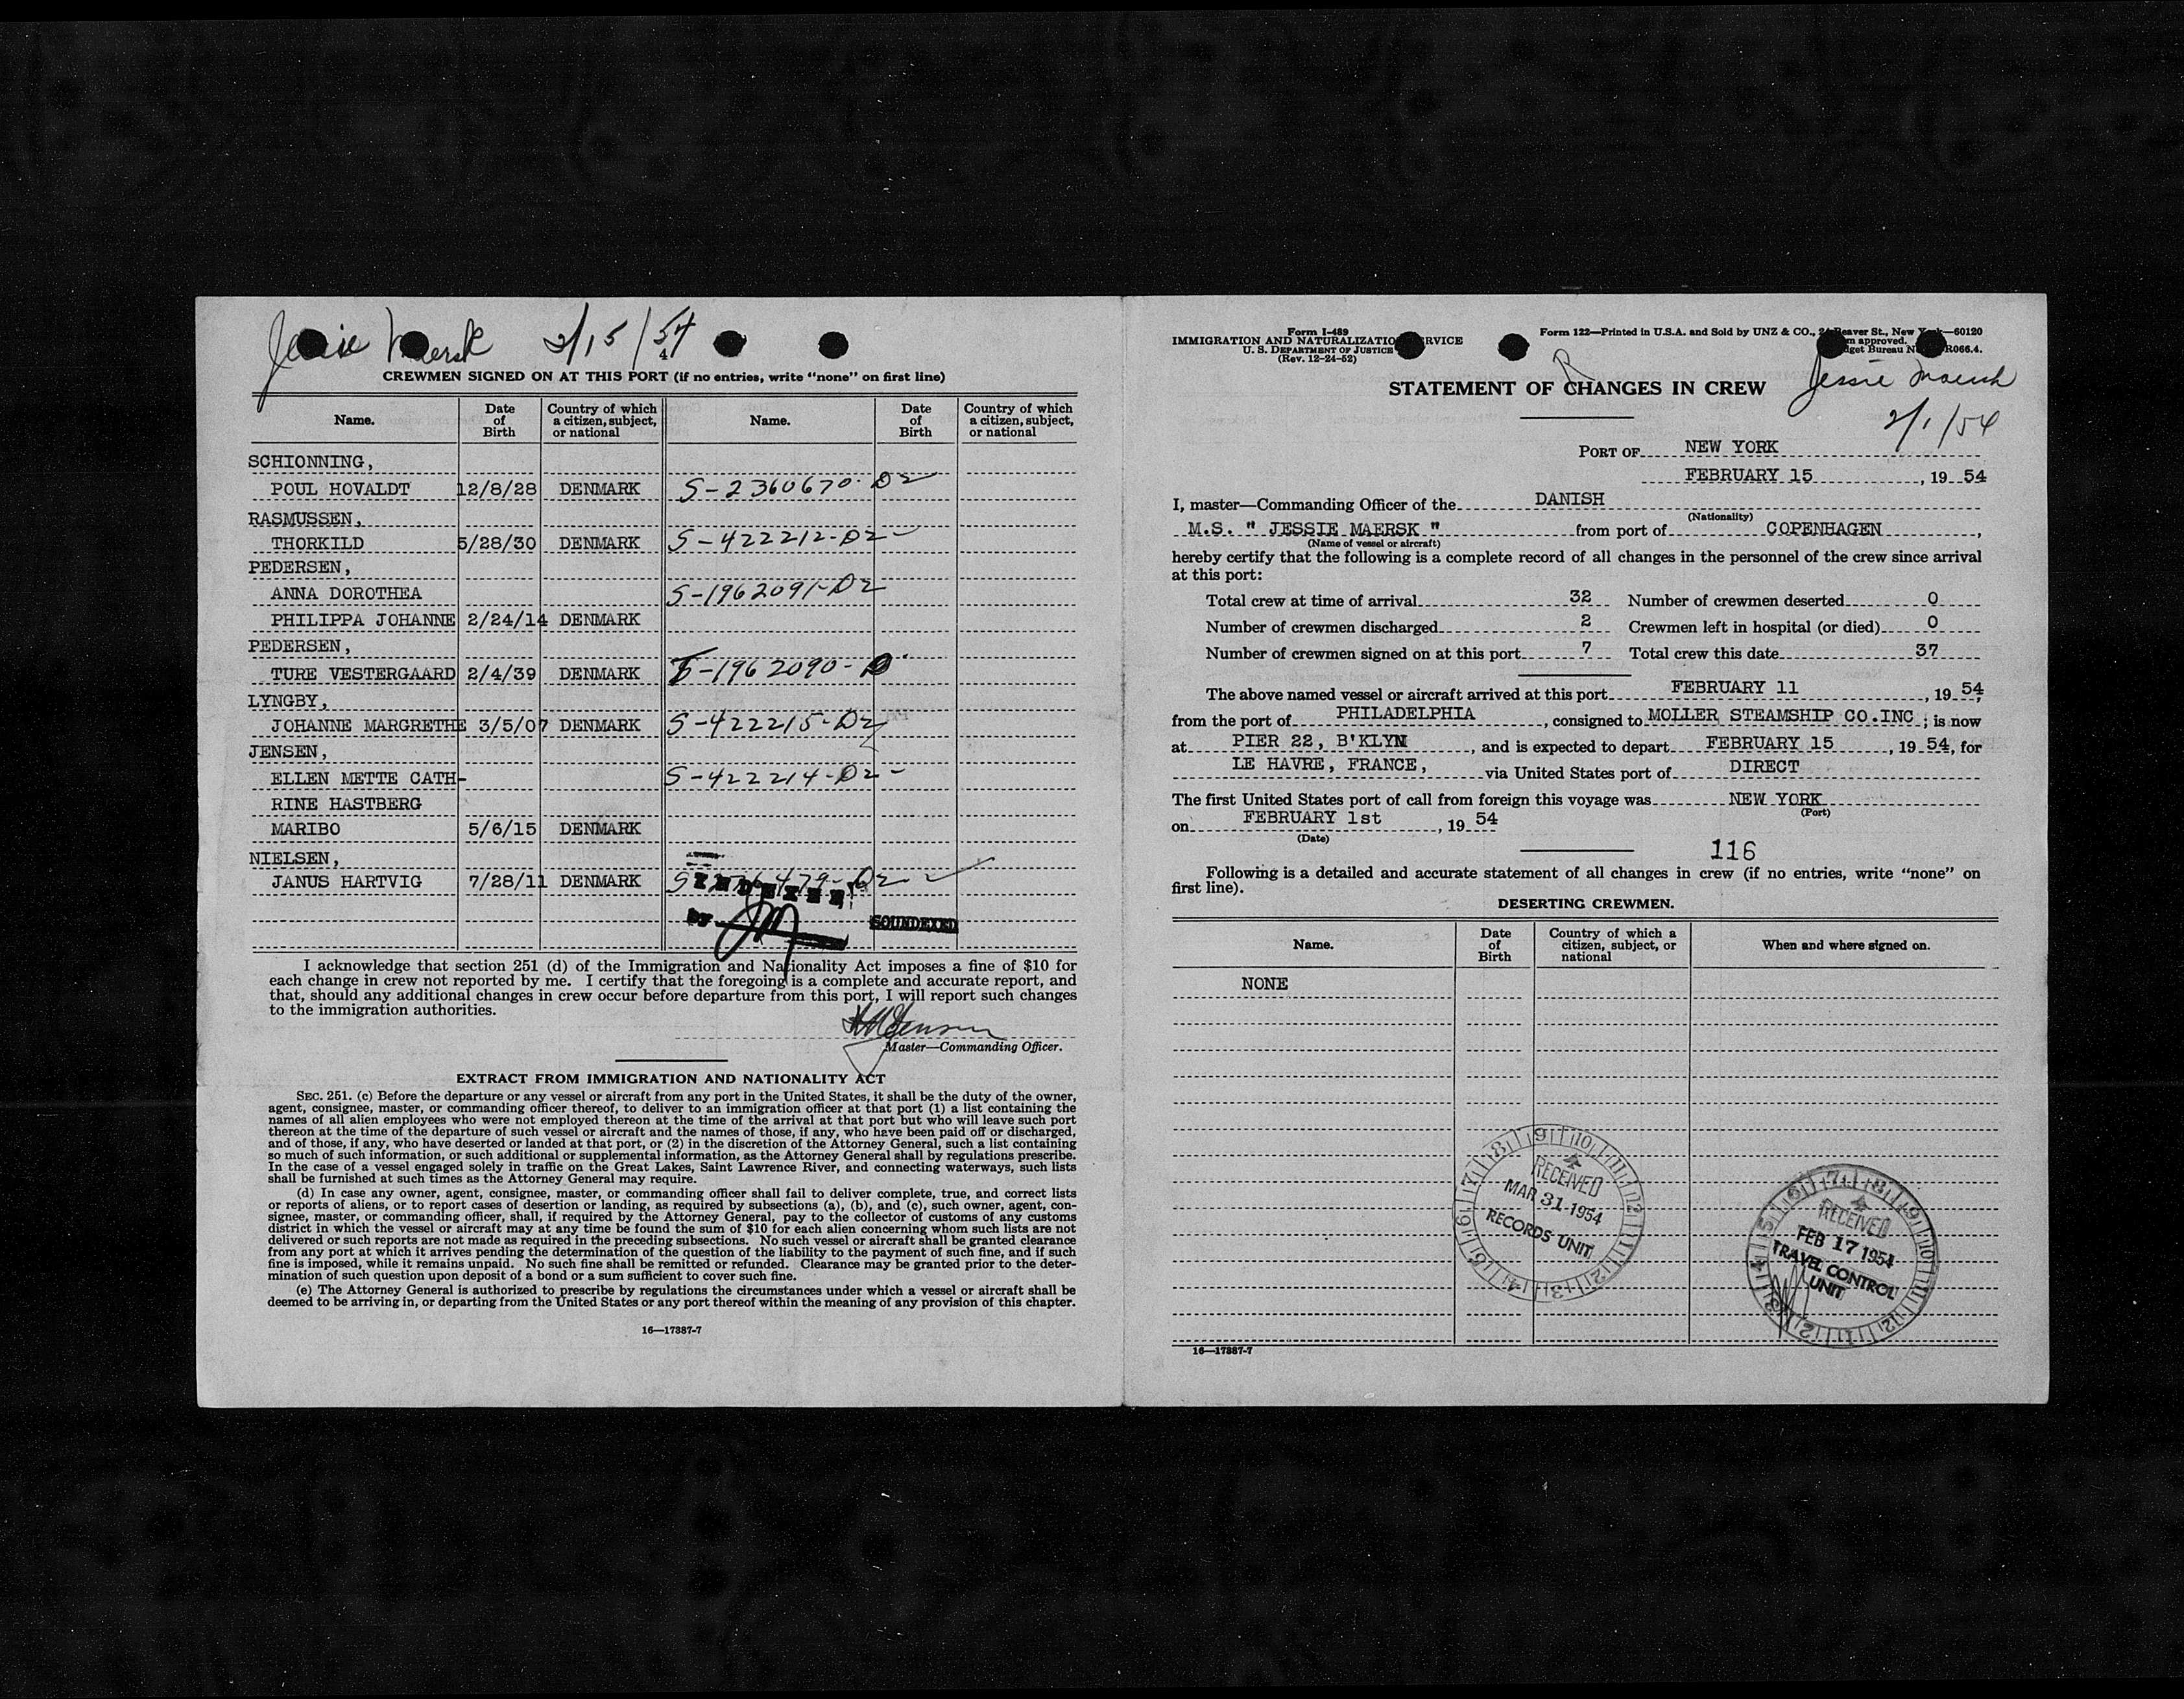 Jessie Maersk 2/15/54
4
CREWMEN SIGNED ON AT THIS PORT (if no entries, write “none” on first line)
Name. Date of Birth Country of which a citizen, subject, or national Name. Date of Birth Country of which a citizen, subject, or national
SCHIONNING,
POUL HOVALDT 12/8/28 DENMARK S-2360670-D2
RASMUSSEN,
THORKILD 5/28/30 DENMARK S-422212-D2-
PEDERSEN,
ANNA DOROTHEA S-1962091-D2
PHILIPPA JOHANNE 2/24/14 DENMARK
PEDERSEN,
TURE VESTERGAARD 2/4/39 DENMARK S-1962090-D
LYNGBY,
JOHANNE MARGRETHE 3/5/07 DENMARK S-422215-D2
JENSEN,
ELLEN METTE CATH- S-422214-D2-
RINE HASTBERG
MARIBO 5/6/15 DENMARK
NIELSEN,
JANUS HARTVIG 7/28/11 DENMARK
INDEXED
BY JM SOUNDEXED
I acknowledge that section 251 (d) of the Immigration and Nationality Act imposes a fine of $10 for
each change in crew not reported by me. I certify that the foregoing is a complete and accurate report, and
that, should any additional changes in crew occur before departure from this port, I will report such changes
to the immigration authorities.
Jensen
Master—Commanding Officer.
EXTRACT FROM IMMIGRATION AND NATIONALITY ACT
SEC. 251. (c) Before the departure or any vessel or aircraft from any port in the United States, it shall be the duty of the owner,
agent, consignee, master, or commanding officer thereof, to deliver to an immigration officer at that port (1) a list containing the
names of all alien employees who were not employed thereon at the time of the arrival at that port but who will leave such port
thereon at the time of the departure of such vessel or aircraft and the names of those, if any, who have been paid off or discharged,
and of those, if any, who have deserted or landed at that port, or (2) in the discretion of the Attorney General, such a list containing
so much of such information, or such additional or supplemental information, as the Attorney General shall by regulations prescribe.
In the case of a vessel engaged solely in traffic on the Great Lakes, Saint Lawrence River, and connecting waterways, such lists
shall be furnished at such times as the Attorney General may require.
(d) In case any owner, agent, consignee, master, or commanding officer shall fail to deliver complete, true, and correct lists
or reports of aliens, or to report cases of desertion or landing, as required by subsections (a), (b), and (c), such owner, agent, con-
signee, master, or commanding officer, shall, if required by the Attorney General, pay to the collector of customs of any customs
district in which the vessel or aircraft may at any time be found the sum of $10 for each alien concerning whom such lists are not
delivered or such reports are not made as required in the preceding subsections. No such vessel or aircraft shall be granted clearance
from any port at which it arrives pending the determination of the question of the liability to the payment of such fine, and if such
fine is imposed, while it remains unpaid. No such fine shall be remitted or refunded. Clearance may be granted prior to the deter-
mination of such question upon deposit of a bond or a sum sufficient to cover such fine.
(e) The Attorney General is authorized to prescribe by regulations the circumstances under which a vessel or aircraft shall be
deemed to be arriving in, or departing from the United States or any port thereof within the meaning of any provision of this chapter.
16—17387-7
Form I-489
IMMIGRATION AND NATURALIZATION SERVICE
U. S. DEPARTMENT OF JUSTICE
(Rev. 12-24-52)
Form 122—Printed in U.S.A. and Sold by UNZ & CO., 24 Beaver St., New York—60120
approved.
Budget Bureau R066.4.
R
Jessie Maersk
2/1/54
STATEMENT OF CHANGES IN CREW
PORT OF NEW YORK
FEBRUARY 15, 19 54
I, master—Commanding Officer of the DANISH
(Nationality)
M.S. " JESSIE MAERSK " from port of COPENHAGEN,
(Name of vessel or aircraft)
hereby certify that the following is a complete record of all changes in the personnel of the crew since arrival
at this port:
Total crew at time of arrival 32 Number of crewmen deserted 0
Number of crewmen discharged 2 Crewmen left in hospital (or died) 0
Number of crewmen signed on at this port 7 Total crew this date 37
The above named vessel or aircraft arrived at this port FEBRUARY 11, 19 54,
from the port of PHILADELPHIA, consigned to MOLLER STEAMSHIP CO.INC; is now
at PIER 22, B'KLYN, and is expected to depart FEBRUARY 15, 19 54, for
LE HAVRE, FRANCE, via United States port of DIRECT
The first United States port of call from foreign this voyage was NEW YORK
(Port)
on FEBRUARY 1st, 19 54
(Date)
116
Following is a detailed and accurate statement of all changes in crew (if no entries, write “none” on
first line).
DESERTING CREWMEN.
Name. Date of Birth Country of which a citizen, subject, or national When and where signed on.
NONE
RECEIVED
MAR 31 1954
RECORDS UNIT
RECEIVED
FEB 17 1954
TRAVEL CONTROL
UNIT
16—17387-7